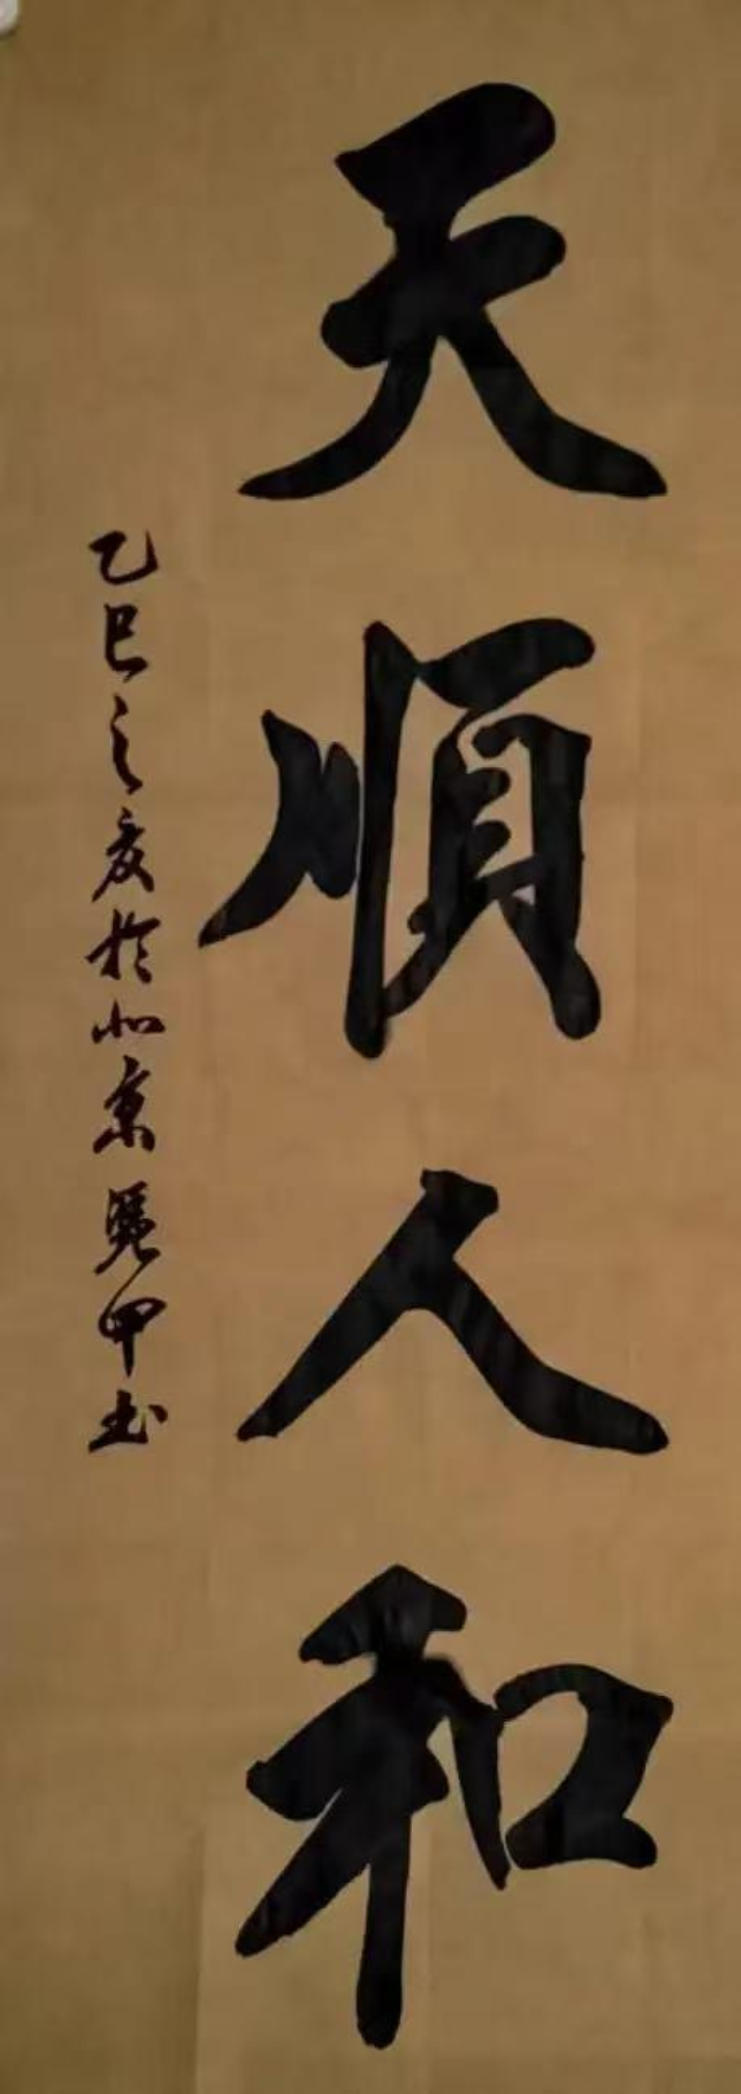 天順人和
乙巳之夏於北京 甲书